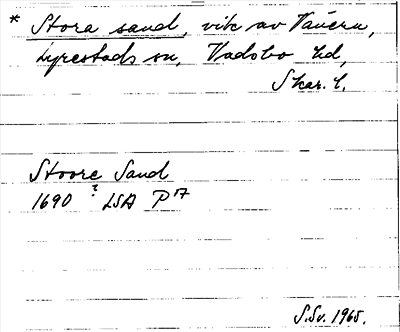 * Stora sand, vik av Vänern,
Lyrestads sn, Vadsbo hd,
Skar. l.
Stoore Sand
?
1690 LSA P 17
S.Sv. 1965.